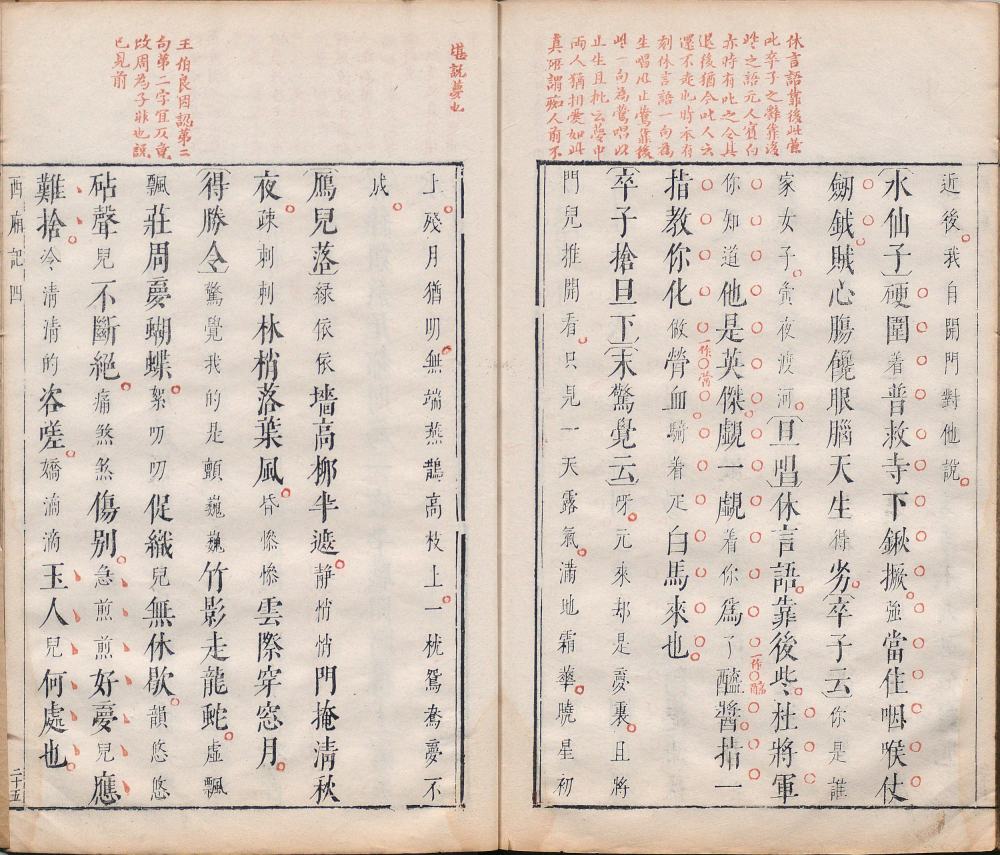 休言語靠後些黨
此卒子之辭靠後
些之語元人賓白
亦時有此之令其
退後猶今叱人云
還不走也時本有
刻休言語一句為
生唱以止鶯靠後
些一句為鶯唱以
止生且批云夢中
兩人猶相愛如此
真所謂痴人前不
近後我自開門對他說
〔水仙子〕硬圍着普救寺下鍬撅強當住咽喉仗
劒鉞賊心膓饞眼腦天生得劣〔卒子云〕你是誰
家女子夤夜渡河〔旦唱〕休言語靠後些杜將軍
你知道他是英傑覷一覷着你為了醯醬指一
指教你化做膋血騎着疋白馬來也
一作〇䤖
一作〇醟
〔卒子搶旦下〕〔末驚覺云〕呀元來却是夢裏且將
門兒推開看只見一天露氣滿地霜華曉星初
堪說夢也
王伯良因認第二
句第二字宜仄竟
改周為子非也說
已見前
上殘月猶明無端燕鵲高枝上一枕鴛鴦夢不
成
〔鴈兒落〕緑依依墻高栁半遮靜悄悄門掩清秋
夜疎剌剌林梢落葉風昏慘慘雲際穿窓月
〔得勝令〕驚覺我的是顫巍巍竹影走龍蛇虛飄
飄莊周夢蝴蝶絮叨叨促織兒無休歇韻悠悠
砧聲兒不斷絕痛煞煞傷别急煎煎好夢兒應
難捨冷清清的咨嗟嬌滴滴玉人兒何處也
西廂記四
二十五